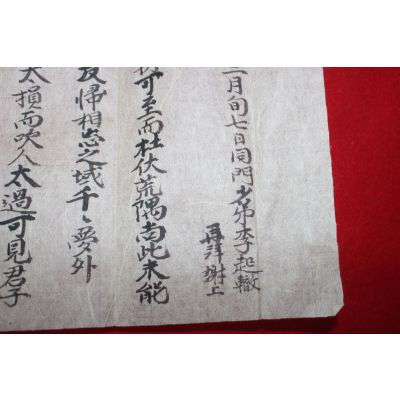 月旬七日同門李起轍
再拜謝上
可至而杜伏荒隅尚此未能
歸相忘之域千〻夢外
太損而吹人太過可見君子